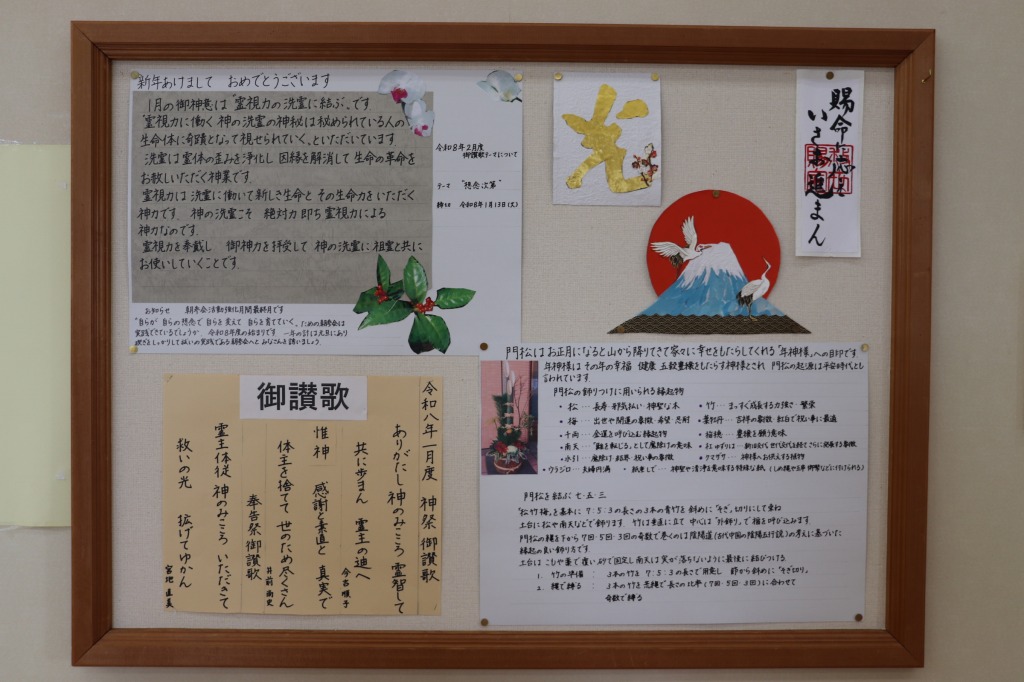 新年あけまして　おめでとうございます
1月の御神意は“霊視力の洗霊に結ぶ”です
“霊視力に働く神の洗霊の神秘は秘められている人の
生命体に奇蹟となって視せられていく”といただいています
洗霊は霊体の歪みを浄化し 因縁を解消して 生命の革命を
お教しいただく神業です．
霊視力は 洗霊に働いて新しき生命と その生命力をいただく
神力です．神の洗霊こそ 絶対力 即ち霊視力による
神力なのです．
霊視力を奉戴し　御神力を拝受して 神の洗霊に祖霊と共に
お使いしていくことです．
お知らせ　朝奉会活動強化月間最終月です
“自らが 自らの想念で 自らを変えて 自らを育てていく”ための朝奉会は
実践できているでしょうか 令和8年度の始まりです．一年の計は元旦にあり
令和8年2月度
御讃歌テーマについて
テーマ　“想念次第”
締切　令和8年1月13日(火)
光
賜命
いさ
まん
門松はお正月になると山から降りてきて家々に幸せをもたらしてくれる「年神様」への目印です
年神様はその年の幸福 健康 五穀豊穣をもたらす神様とされ 門松の起源は平安時代とも
言われています．
門松の飾りつけに用いられる縁起物
・松 … 長寿・邪気払い・神聖な木
・竹 … まっすぐ成長する力強さ・繁栄
・梅 … 出世や開運の象徴・希望・忍耐
・葉牡丹 … 吉祥の象徴 紅白で祝い事に最適
・千両 … 金運を呼び込む縁起物
・稲穂 … 豊穣を願う意味
・南天 … “難を転じる”として魔除けの意味
・水引 … 魔除け・結界 祝い事の象徴
・クマザサ … 神様へお供えする植物
・ウラジロ … 夫婦円満
・紙垂して … 神聖や清浄を意味する特殊な紙
門松を結ぶ 七・五・三
“松竹梅”を基本に 7：5：3の長さの3本の青竹を斜めに“そぎ”切りにして束ね
土台に松や南天などで飾ります
門松の縄を下から7回・5回・3回の奇数で巻くのは陰陽道(古代中国の陰陽五行説)の考えに基づいた
縁起の良い飾り方です．
土台は こもや藁で覆い 砂で固定し 南天は実が落ちないように最後に結びつける．
1. 竹の準備 ： 3本の竹を 7：5：3の長さで用意し 節から斜めに“そぎ切り”
2. 縄で縛る ： 3本の竹を荒縄で長さの比率(7回・5回・3回)に合わせて
奇数で縛る
御讃歌
令和八年一月度　神祭御讃歌
ありがたし 神のみこころ 霊智して
共に歩まん 霊主の道へ
今古順子
惟神 感謝と素直と 真実で
体主を捨て 世のため尽くさん
井前 南史
奉告祭御讃歌
霊主体従 神のみこころ いただきて
救いの光　拡げてゆかん
宮地 直長